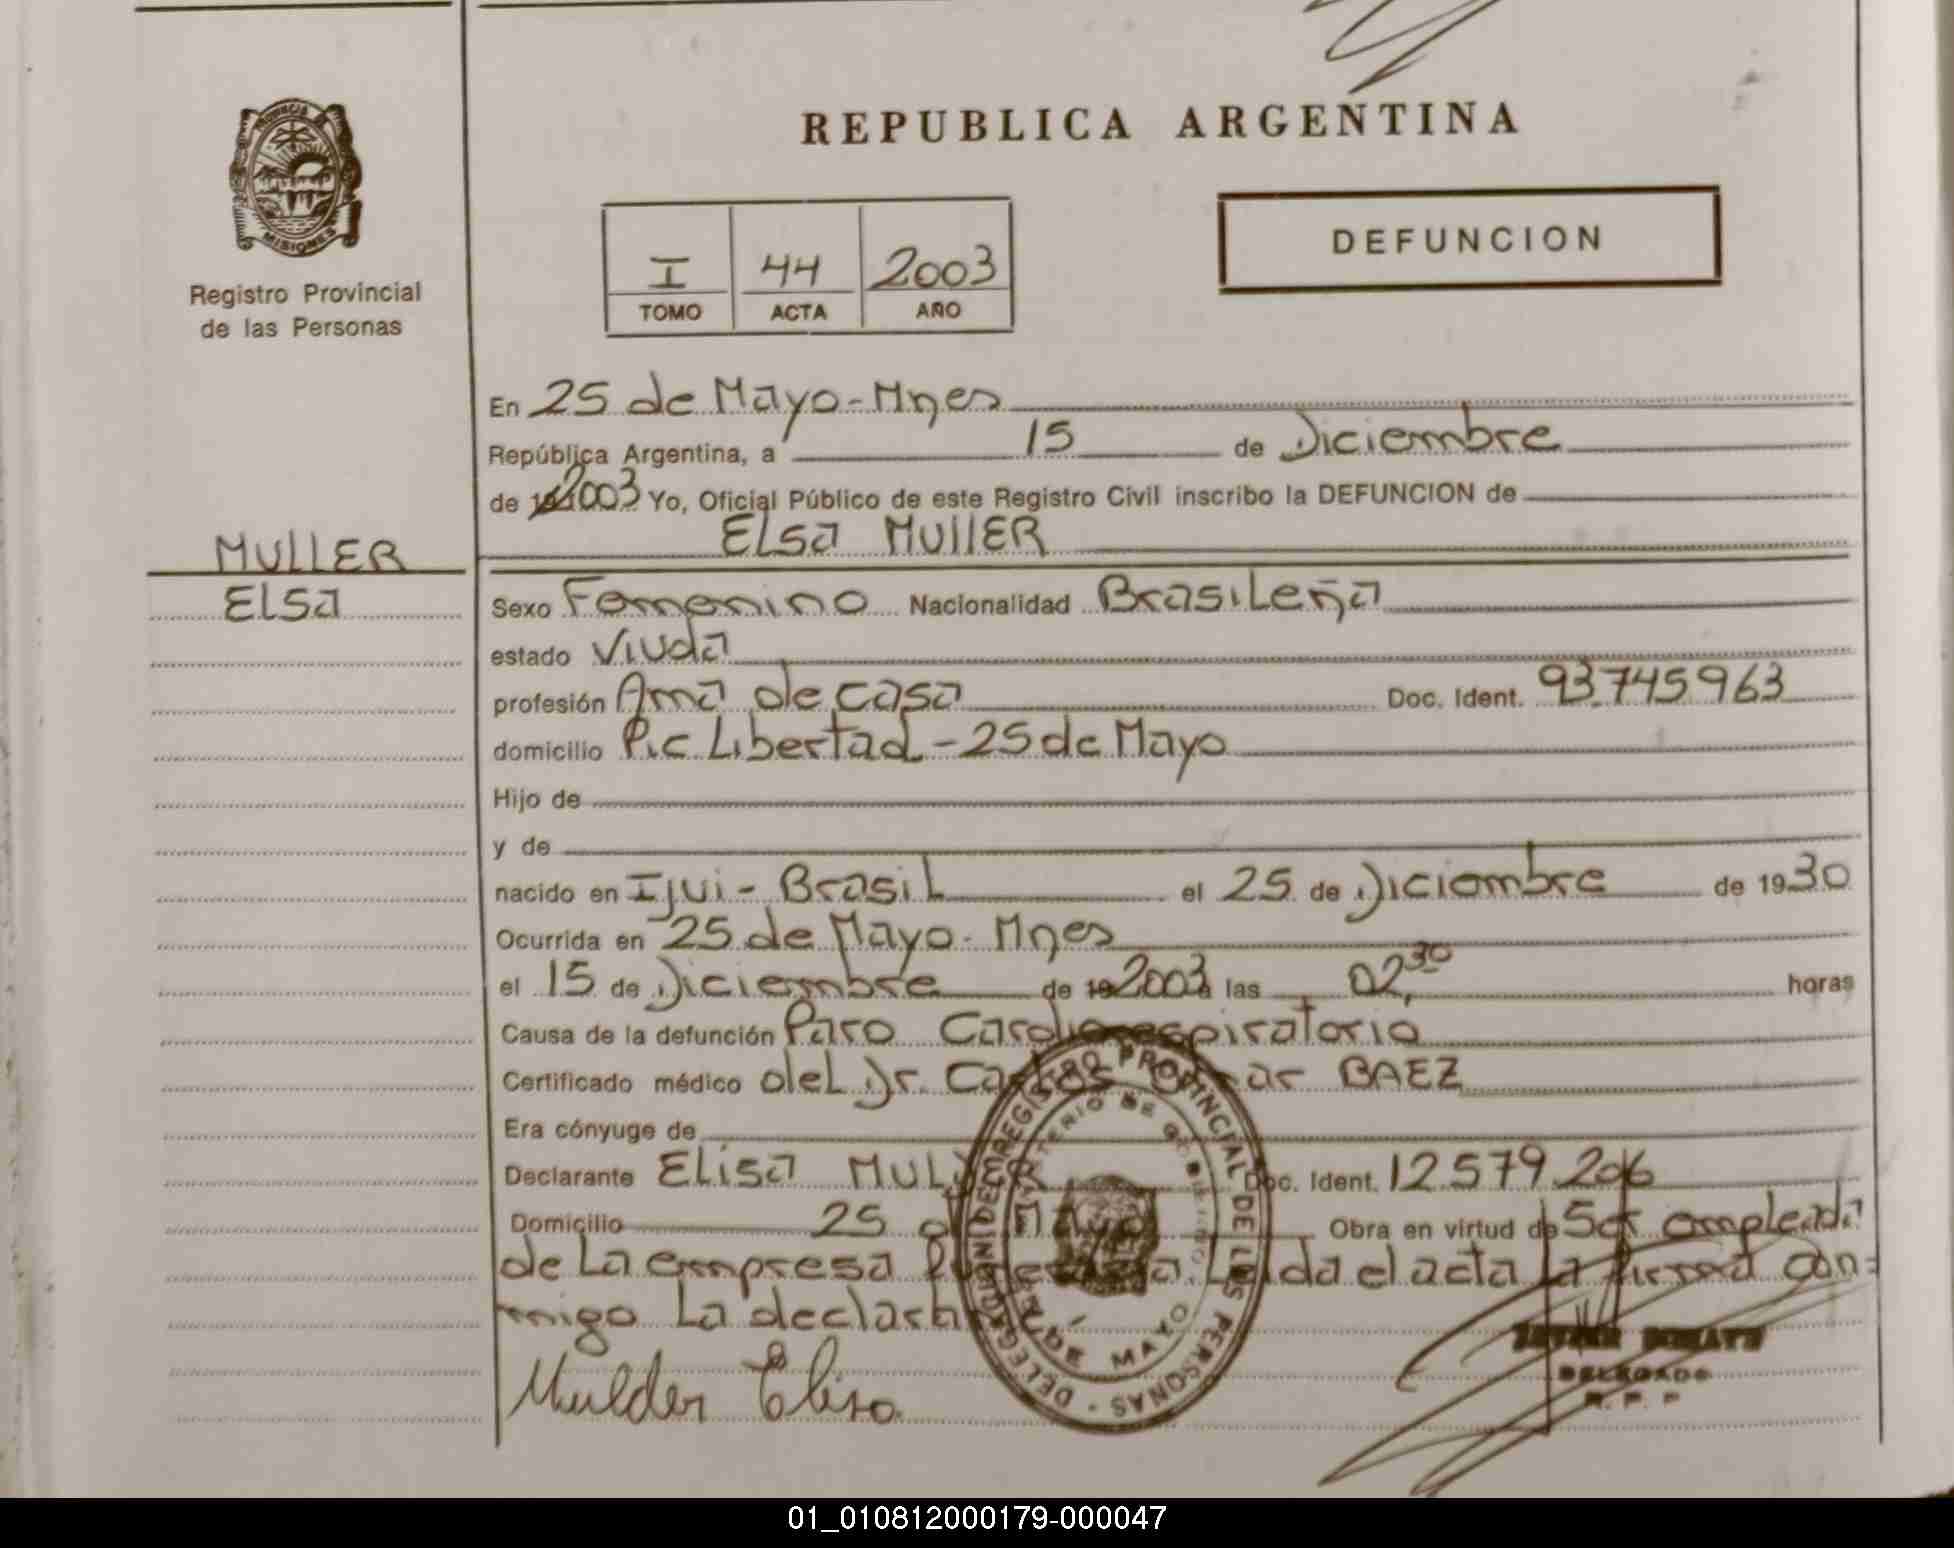 REPUBLICA ARGENTINA
PROVINCIA DE
MISIONES
Registro Provincial
de las Personas
I 44 2003
TOMO ACTA AÑO
DEFUNCION
En 25 de Mayo - Mnes
República Argentina, a 15 de Diciembre
de 2003 Yo, Oficial Público de este Registro Civil inscribo la DEFUNCION de
ELSa MUllER
MULLER
ELSa
Sexo Femenino Nacionalidad Brasileña
estado Viuda
profesión Ama de casa Doc. Ident. 93.745963
domicilio Pic. Libertad - 25 de Mayo
Hijo de
y de
nacido en Ijui - Brasil el 25 de Diciembre de 1930
Ocurrida en 25 de Mayo. Mnes
el 15 de Diciembre de 2003 a las 02,30 horas
Causa de la defunción Paro Cardiorespiratorio
Certificado médico del Dr. Carlos Omar BAEZ
Era cónyuge de
Declarante Elisa MUL Doc. Ident. 12.579.206
Domicilio 25 de Mayo Obra en virtud de Ser empleada
de La empresa Leida el acta la firma con=
migo La declarante
Mulder Elisa
REGISTRO PROVINCIAL DE LAS PERSONAS - DELEG
MINISTERIO DE GOBIERNO
25 DE MAYO
DELEGADO
R. P. P
01_010812000179-000047